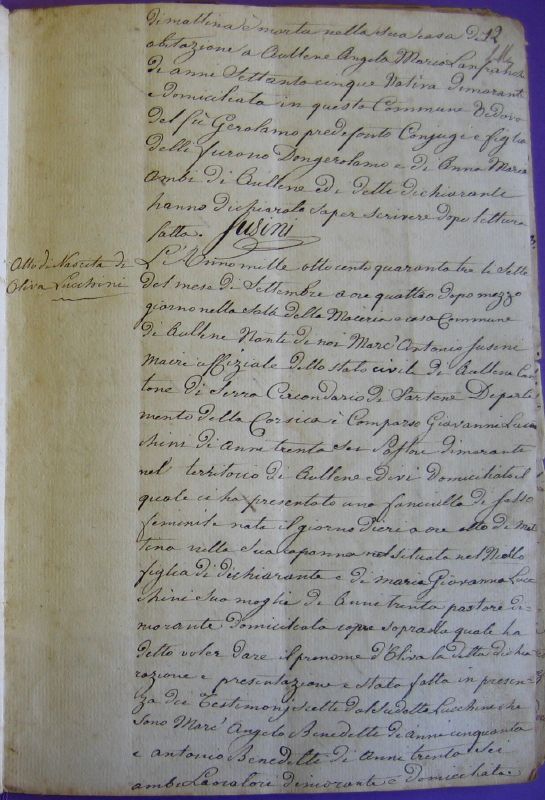 di mattina è morta nella sua casa di 12
abitazione a Aullene Angela Maria Lanfranchi
di anni Settanta cinque Nativa dimorante
e domiciliata in questo Commune Vedova
del fù Gerolamo predefonto Conjugi e figlia
delli furono Dongerolamo e di Anna Maria
ambi di Aullene ed i detti dichiaranti
hanno dichiarato saper scrivere dopo lettura
fatta. Susini
Atto di Nascita di
Oliva Lucchini
L'Anno mille otto cento quaranta tre li Sette
del mese di Settembre a ore quattro dopo mezzo
giorno nella Sala della Maceria e casa Commune
di Aullene Nanti di noi Marc' Antonio Susini
Maire uffiziale dello stato civile di Aullene Can
tone di Serra Circondario di Sartene Diparti
mento della Corsica è Comparso Giovanni Luc
chini di anni trenta sei Pastore dimorante
nel territorio di Aullene ed ivi domiciliato il
quale ci ha presentato una fanciulla di sesso
feminile nata il giorno d'ieri a ore otto di mat
tina nella sua capanna situata nel
figlia di dichiarante e di maria Giovanna Luc
chini sua moglie di anni trenta pastore di
morante domiciliata come sopra alla quale ha
detto voler dare il prenome d'Oliva la detta dichia
razione e presentazione e stata fatta in presen
za dei Testimonj scelti dal sudetto Lucchini che
sono Marc' Angelo Benedetti di anni cinquanta
e antonio Benedetti di anni trenta sei
ambi Lavratori dimoranti e domiciliati